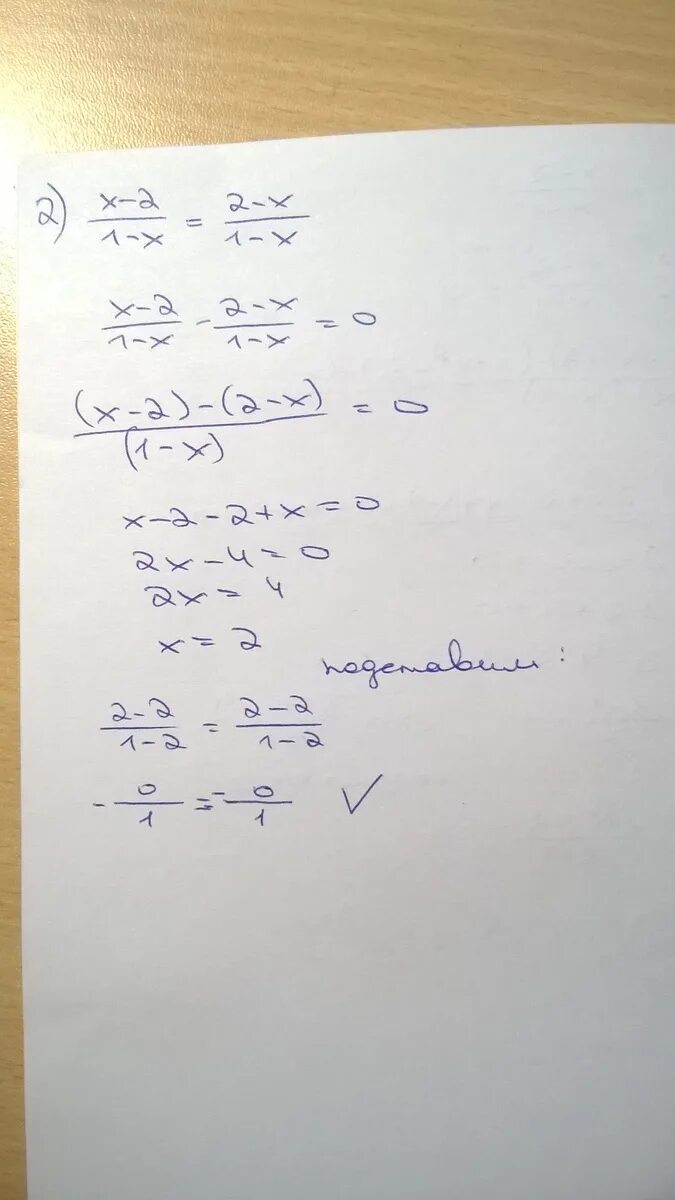 2) (x-2)/(1-x) = (2-x)/(1-x)
(x-2)/(1-x) - (2-x)/(1-x) = 0
((x-2)-(2-x))/(1-x) = 0
x-2-2+x=0
2x-4=0
2x=4
x=2
подставим:
(2-2)/(1-2) = (2-2)/(1-2)
-0/1 = -0/1 ✓